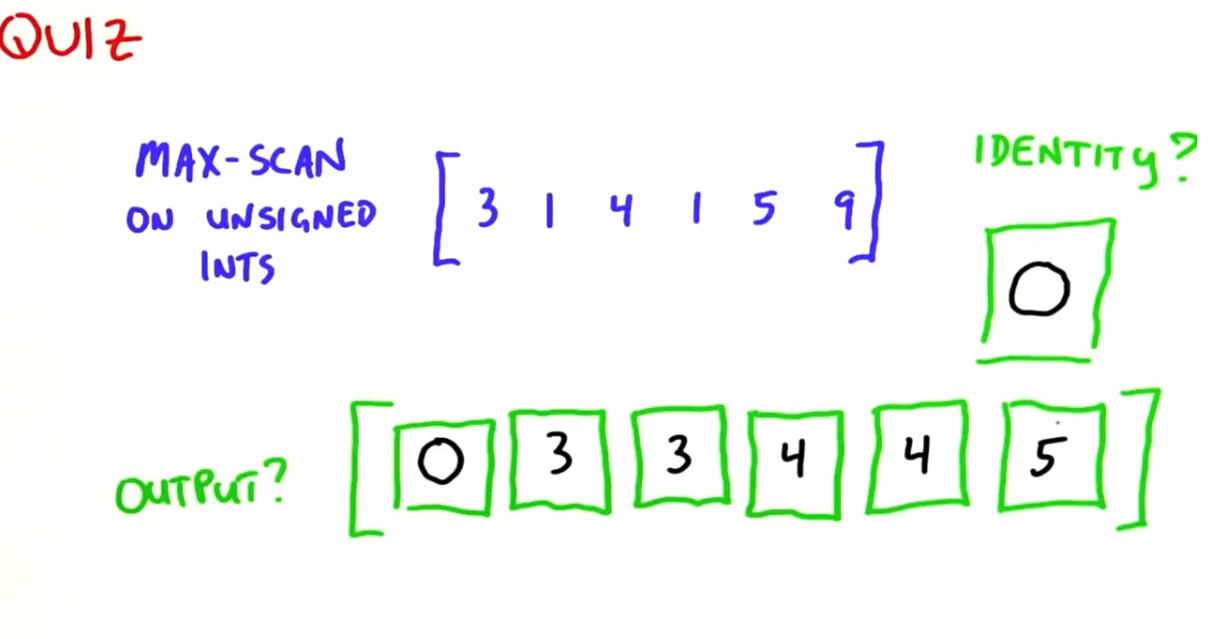 QUIZ
MAX-SCAN
ON UNSIGNED
INTS
[3 1 4 1 5 9]
IDENTITY?
0
OUTPUT?
[0 3 3 4 4 5]